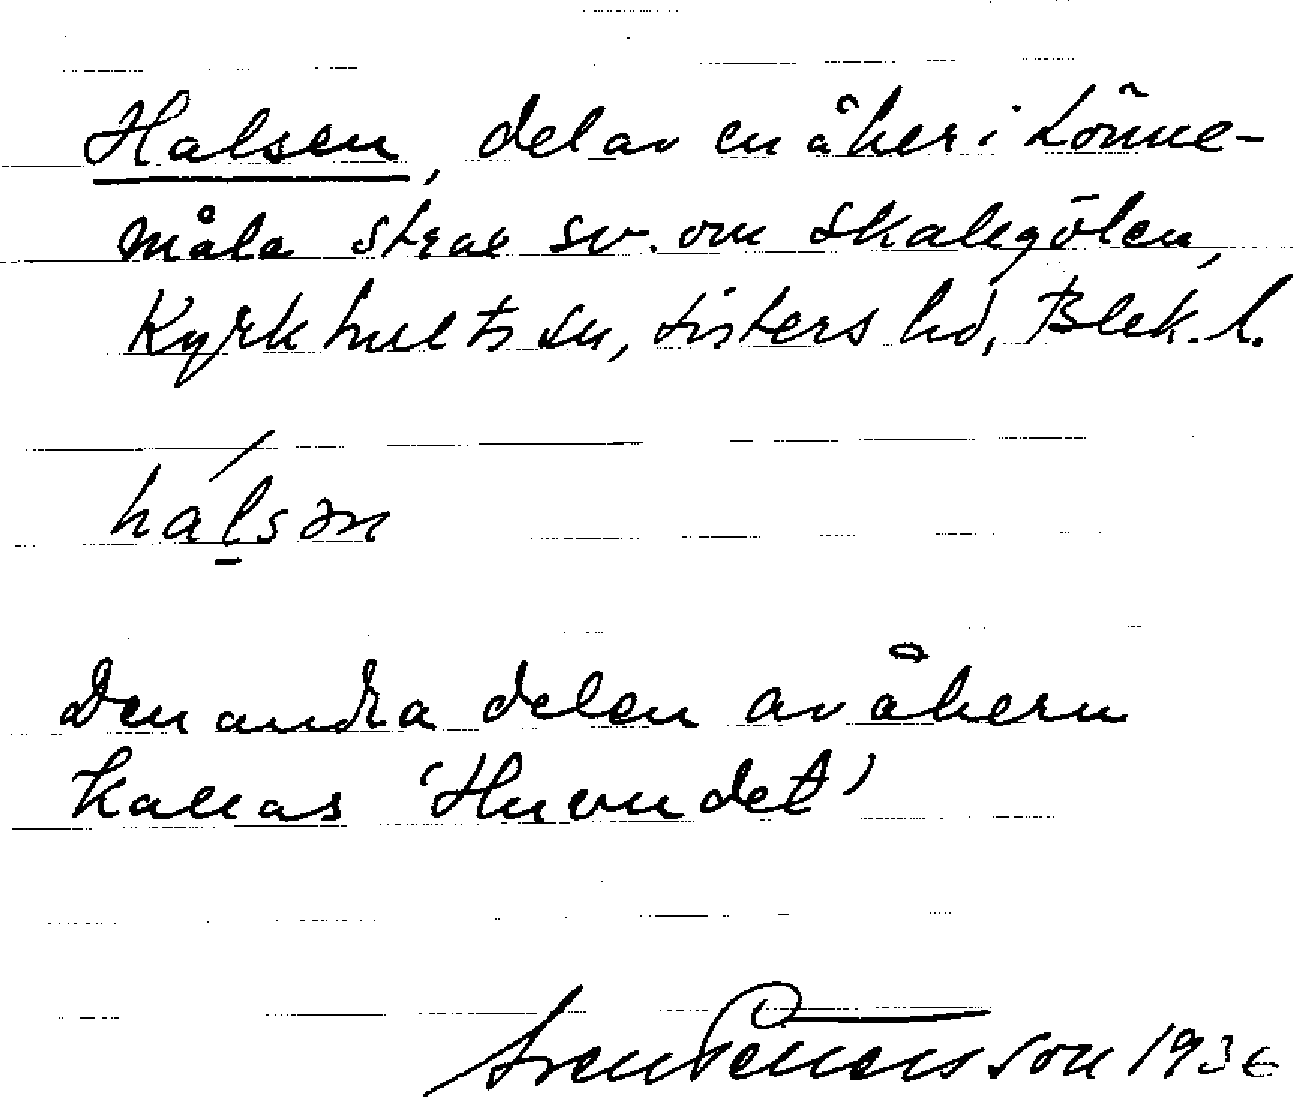 Halsen, del av en åker i Lönne-
måla strax sv. om Skalegölen,
Kyrkhults sn, Listers hd, Blek. l.
hálsən
Den andra delen av åkern
kallas 'Huvudet'
Sven Pettersson 1936